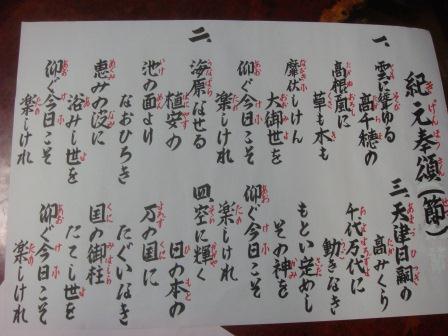 紀元奉頌(節)
一、雲に聳ゆる
高千穂の
高根颪に
草も木も
靡伏しけん
大御世を
仰ぐ今日こそ
楽しけれ
二、海原なせる
植安の
池の面より
なおひろき
恵みの波に
浴みし世を
仰ぐ今日こそ
楽しけれ
三、天津日嗣の
高みくら
千代万代に
動きなき
もとい定めし
その神を
仰ぐ今日こそ
楽しけれ
四、空に輝く
日の本の
万の国に
たぐいなき
国の御柱
たてし世を
仰ぐ今日こそ
楽しけれ